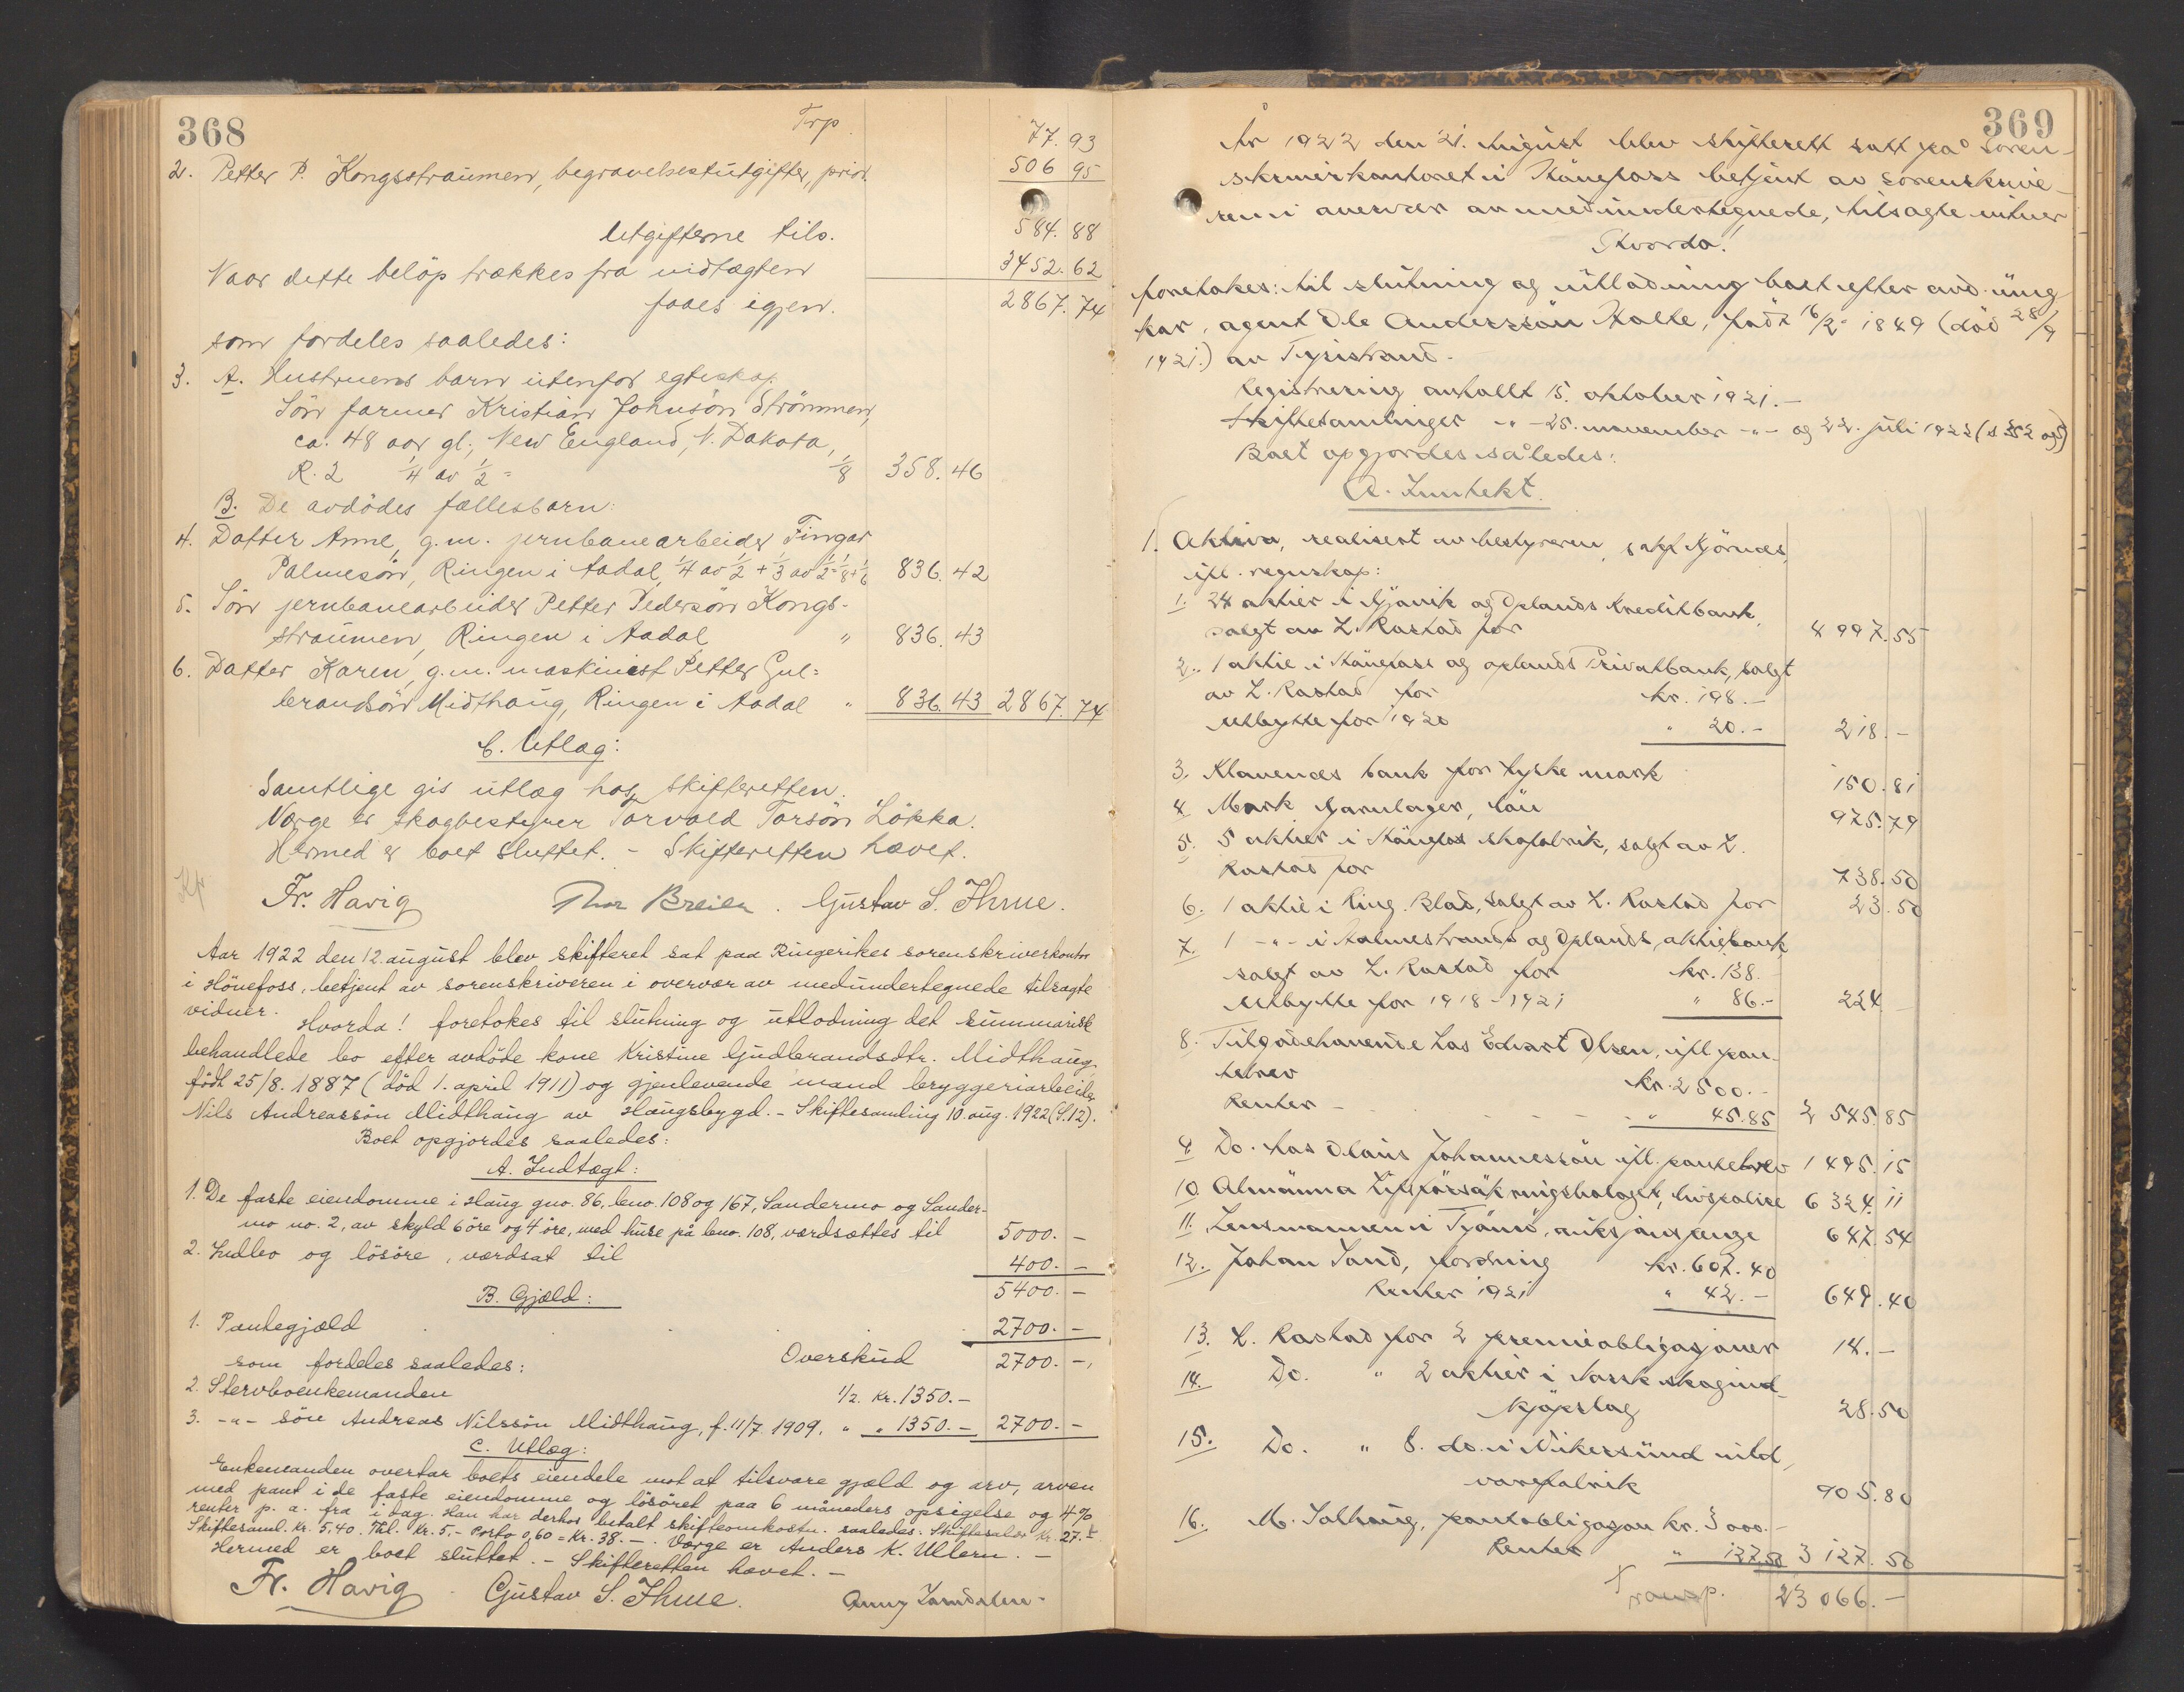 368
Trp. 77.93
2. Petter P. Kongsstraumen, begravelsesutgifter, prior. 506 95
Utgifterne tils. 584.88
Naar dette beløp trækkes fra indtægten 3452.62
faaes igjen. 2867.74
som fordeles saaledes:
3. A. Hustruens barn utenfor egteskap.
Sön farmer Kristian Johnsön Strömmen,
ca. 48 aar gl., New England, N. Dakota,
R. 2 1/4 av 1/2 = 1/8 358.46
B. De avdödes fællesbarn:
4. Datter Anne, g.m. jernbanearbeider Fingar
Palmesön, Ringen i Aadal, 1/4 av 1/2 + 1/3 av 1/2 = 1/8 + 1/6 836.42
5. Sön jernbanearbeider Petter Pedersön Kongs-
straumen, Ringen i Aadal " 836.43
6. Datter Karen, g.m. maskinist Petter Gul=
brandsön Midthaug, Ringen i Aadal " 836.43 2867.74
C. Utlæg:
Samtlige gis utlæg hos skifteretten.
Værge er skogbestyrer Torvald Torsön Lökka.
Hermed er boet sluttet. - Skifteretten hævet.
Fr. Havig Thor Breien. Gustav S. Ihme.
Aar 1922 den 12. august blev skifteret sat paa Ringerikes sorenskriverkontor
i Hönefoss, betjent av sorenskriveren i overvær av medundertegnede tilsagte
vidner.
Hvorda! foretokes til slutning og utlodning det summarisk
behandlede bo efter avdöde kone Kristine Gudbrandsdtr. Midthaug,
född 25/8. 1887 (död 1. april 1911) og gjenlevende mand bryggeriarbeider
Nils Andreassön Midthaug av Haugsbygd. - Skiftesamling 10. aug. 1922 (S.12).
Boet opgjordes saaledes:
A. Indtægt:
1. De faste eiendomme i Haug gno. 86, bno. 108 og 167, Sandermo og Sander-
mo no. 2, av skyld 6 öre og 4 öre, med huse på bno. 108, værdsættes til 5000. -
2. Indbo og lösöre, værdsat til 400. -
5400. -
B. Gjæld:
1. Pantegjæld 2700. -
Overskud 2700. -
som fordeles saaledes:
2. Stervboenkemanden 1/2. Kr. 1350. -
3. -"- sön Andreas Nilssön Midthaug, f. 11/7. 1909. " " 1350. - 2700. -
C. Utlæg:
Enkemanden overtar boets eiendele mot at tilsvare gjæld og arv, arven
med pant i de faste eiendomme og lösöret paa 6 måneders opsigelse og 4%
renter p. a. fra i dag. Han har derhos betalt skifteomkostn. saaledes: Skiftesalær Kr. 27.-
Skiftesaml. Kr. 5,40. Thl. Kr. 5,- Porto 0,60 = Kr. 38. - . Værge er Anders K. Ullern. -
Hermed er boet sluttet. - Skifteretten hævet. -
Fr. Havig Gustav S. Ihme.
369
År 1922 den 21. august blev skifterett satt på soren-
skriverkontoret i Hönefoss betjent av sorenskrive-
ren i overvær av medundertegnede, tilsagte vitner
Hvorda!
foretokes: til slutning og utlodning boet efter avd. ung-
kar, agent Ole Anderssön Holte, född 16/2. 1849 (död 28/9
1921.) av Tyristrand.
Registrering avholdt 15. oktober 1921. -
Skiftesamlinger -"- 25. november -"- og 22. juli 1922
Boet opgjordes således:
A. Inntekt.
1. Aktiva, realisert av bestyreren,
ifl. regnskap:
1. 24 aktier i Gjövik og Oplands Kreditbank,
solgt av L. Rastad for 4 997.55
2. 1 aktie i Hönefoss og oplands Privatbank, solgt
av L. Rastad for kr. 198. -
Utbytte for 1920 " 20. - 218. -
3. Klavenes bank for tyske mark 150.81
4. Mork Garnlager, lån 975.79
5. 5 aktier i Hönefos skofabrik, solgt av L.
Rastad for 738.50
6. 1 aktie i Ring. Blad, solgt av L. Rastad for 23.50
7. 1 -"- i Holmestrands og Oplands aktiebank
solgt av L. Rastad for kr. 138.
Utbytte for 1918 - 1921 " 86. - 224
8. Tilgodehavende hos Edvart Olsen, ifl. pan-
tebrev kr. 2500. -
Renter " 45.85 2 545.85
9 Do. hos Olaus Johannessön ifl. pantebrev 1 495.15
10 Almänna Lifförsäkringsbolaget, livspolise 6 324.11
11. Lensmannen i Tjömö, auksjonspenge 647.54
12. Johan Sand, fordring kr. 607.40
Renter 1921 " 42. - 649.40
13. L. Rastad for 2 premieobligasjoner 14. -
14. Do. " 2 aktier i Norsk skogind-
kjöpslag 28.50
15. Do. " 8. do. i Vikersund uld-
varefabrik 905.80
16. M. Solhaug, pantobligasjon kr. 3000. -
Renter " 127.50 3 127.50
Transp. 23 066. -